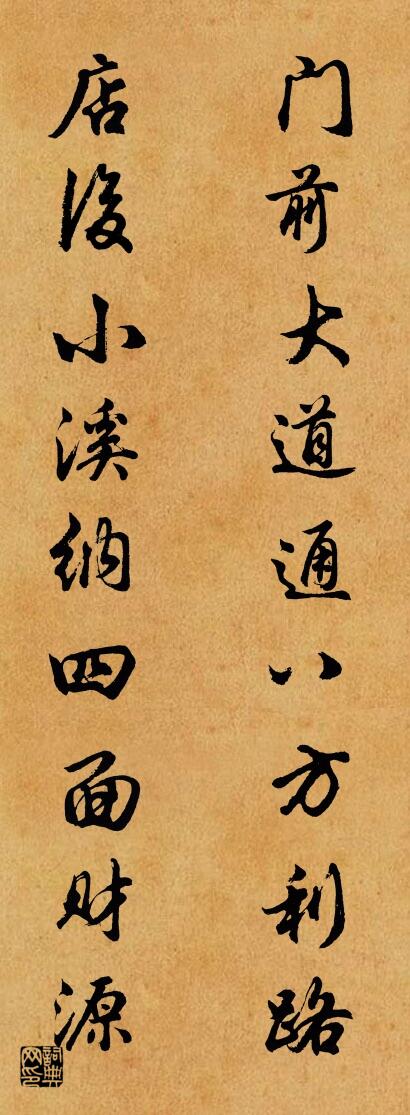 门前大道通八方利路
店後小溪纳四面财源
詞典网印